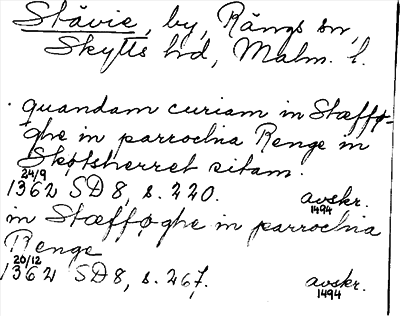 Stävie, by, Rängs sn,
Skytts hd, Malm. l.
quandam curiam in Stæffø-
ghe in parrochia Renge in
Skøtsherret sitam.
24/9
1362 SD 8, s. 220. avskr.
1494
in Stæfføghe in parrochia
Renge
20/12
1362 SD 8, s. 267. avskr.
1494